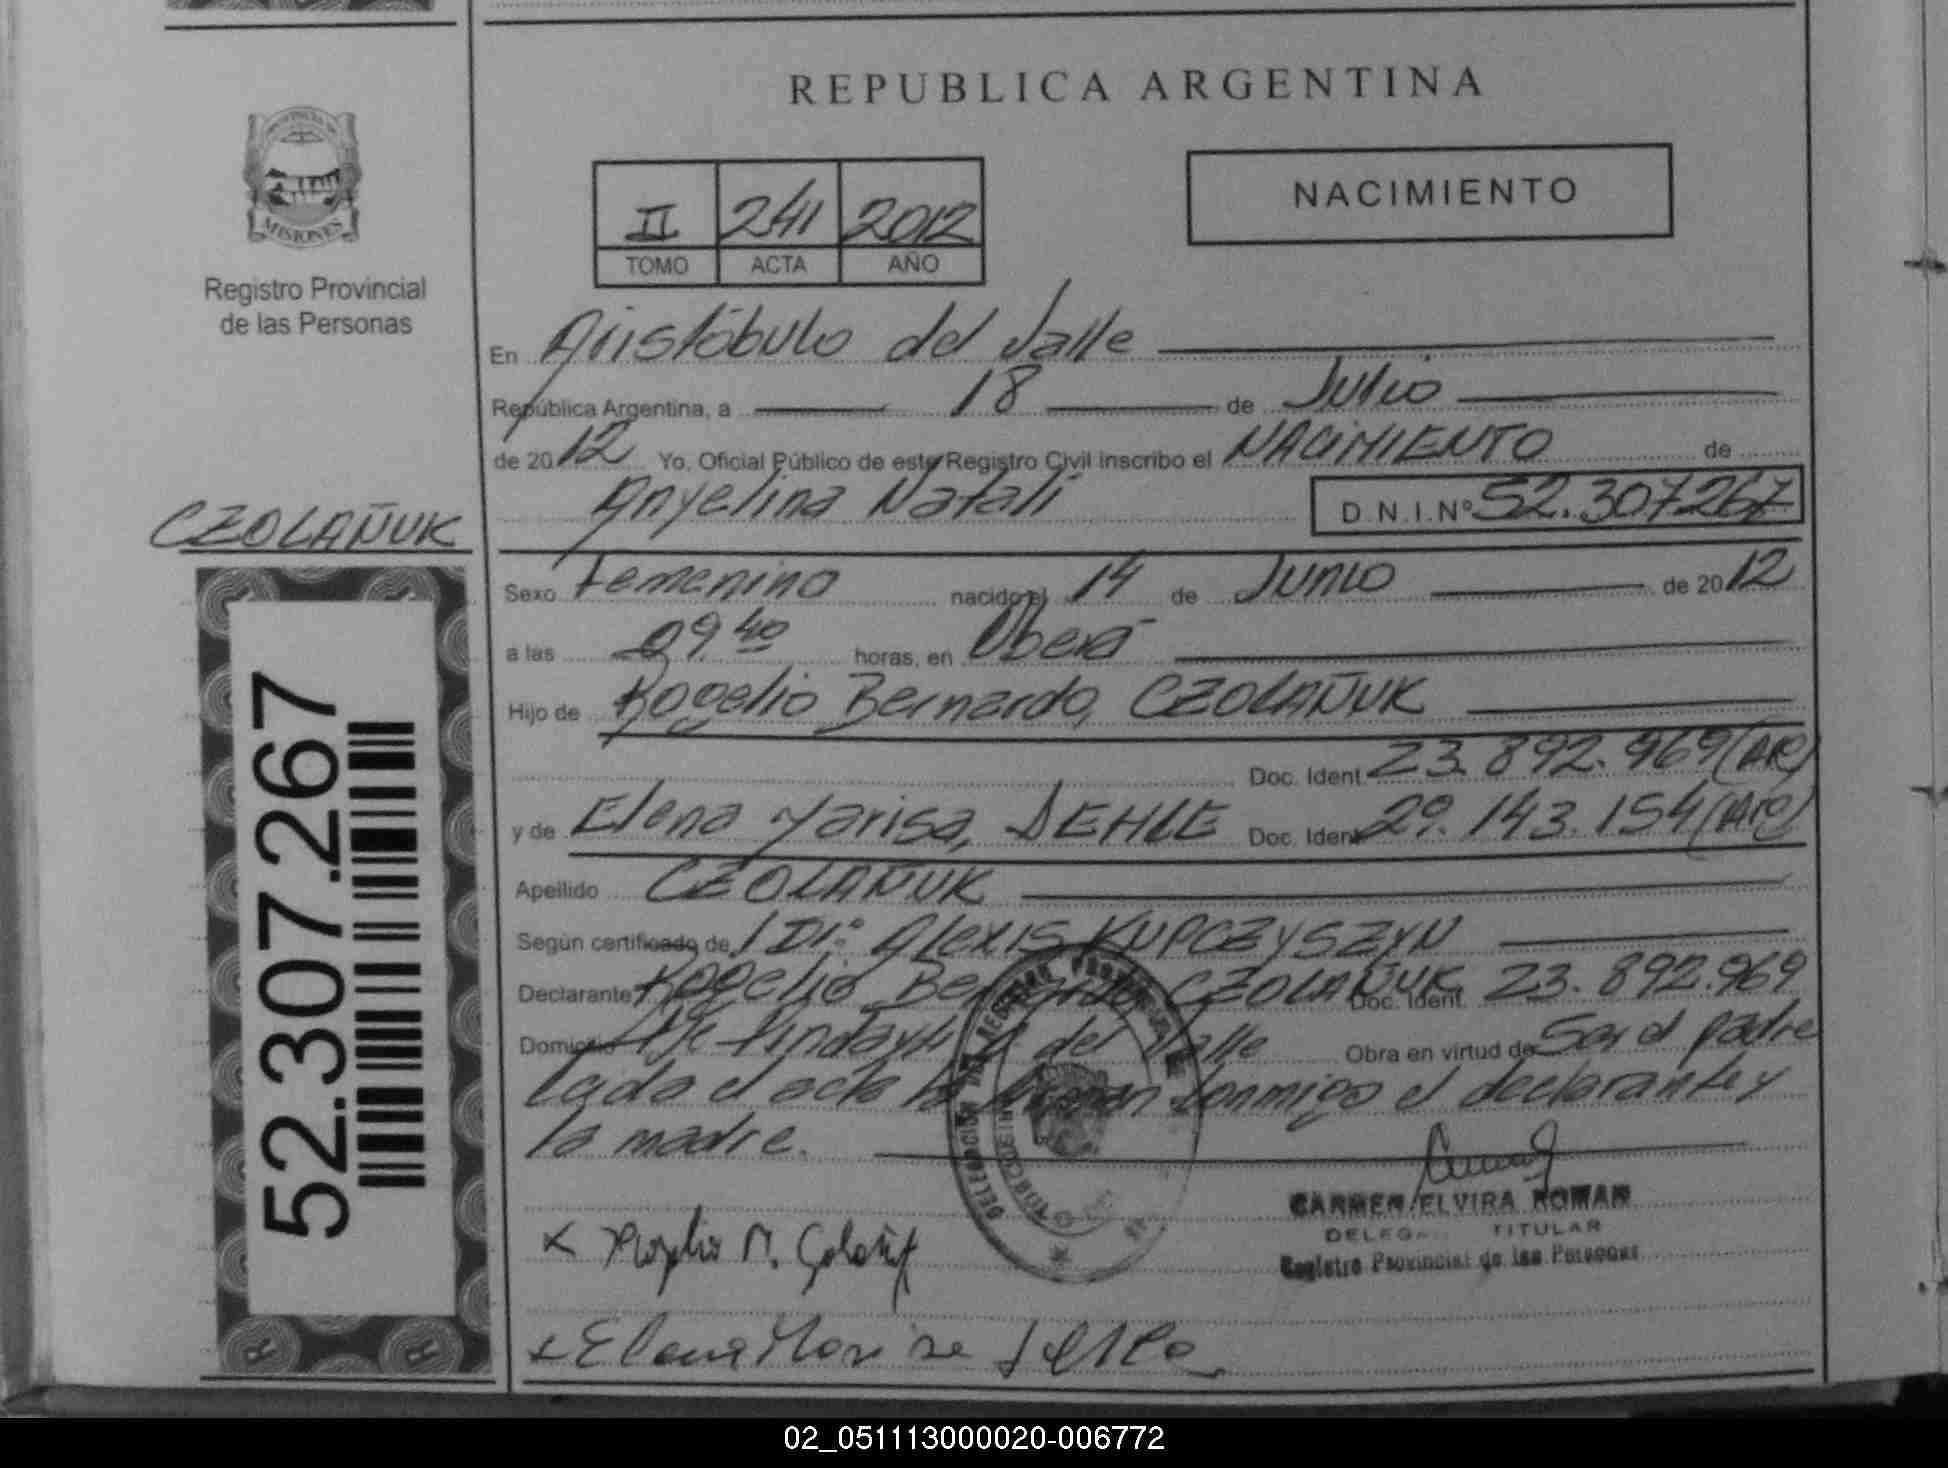 REPUBLICA ARGENTINA
PROVINCIA DE
MISIONES
Registro Provincial
de las Personas
II 241 2012
TOMO ACTA AÑO
NACIMIENTO
En Aristóbulo del Valle
República Argentina, a 18 de Julio
de 2012 Yo, Oficial Público de este Registro Civil inscribo el NACIMIENTO de
Anyelina Natali D.N.I.Nº 52.307267
CZOLAÑUK
Sexo Femenino nacido el 14 de Junio de 2012
a las 09 40 horas, en Oberá
Hijo de Rogelio Bernardo, CZOLAÑUK
Doc. Ident. 23.892.969 (AR)
y de Elena Marisa, DEHLE Doc. Ident. 29.143.154 (AR)
Apellido CZOLAÑUK
Según certificado de / Dr: Alexis KUPCZYSZYN
Declarante Rogelio Bernardo CZOLAÑUK Doc. Ident. 23.892.969
Domicilio del Valle Obra en virtud de Ser el padre
Leida el acta la firman conmigo el declarante y
la madre.
52.307.267
DELEGACION DEL REGISTRO PROVINCIAL DE
CARMEN ELVIRA ROMAN
TITULAR
Registro Provincial de las Personas
R R
02_051113000020-006772